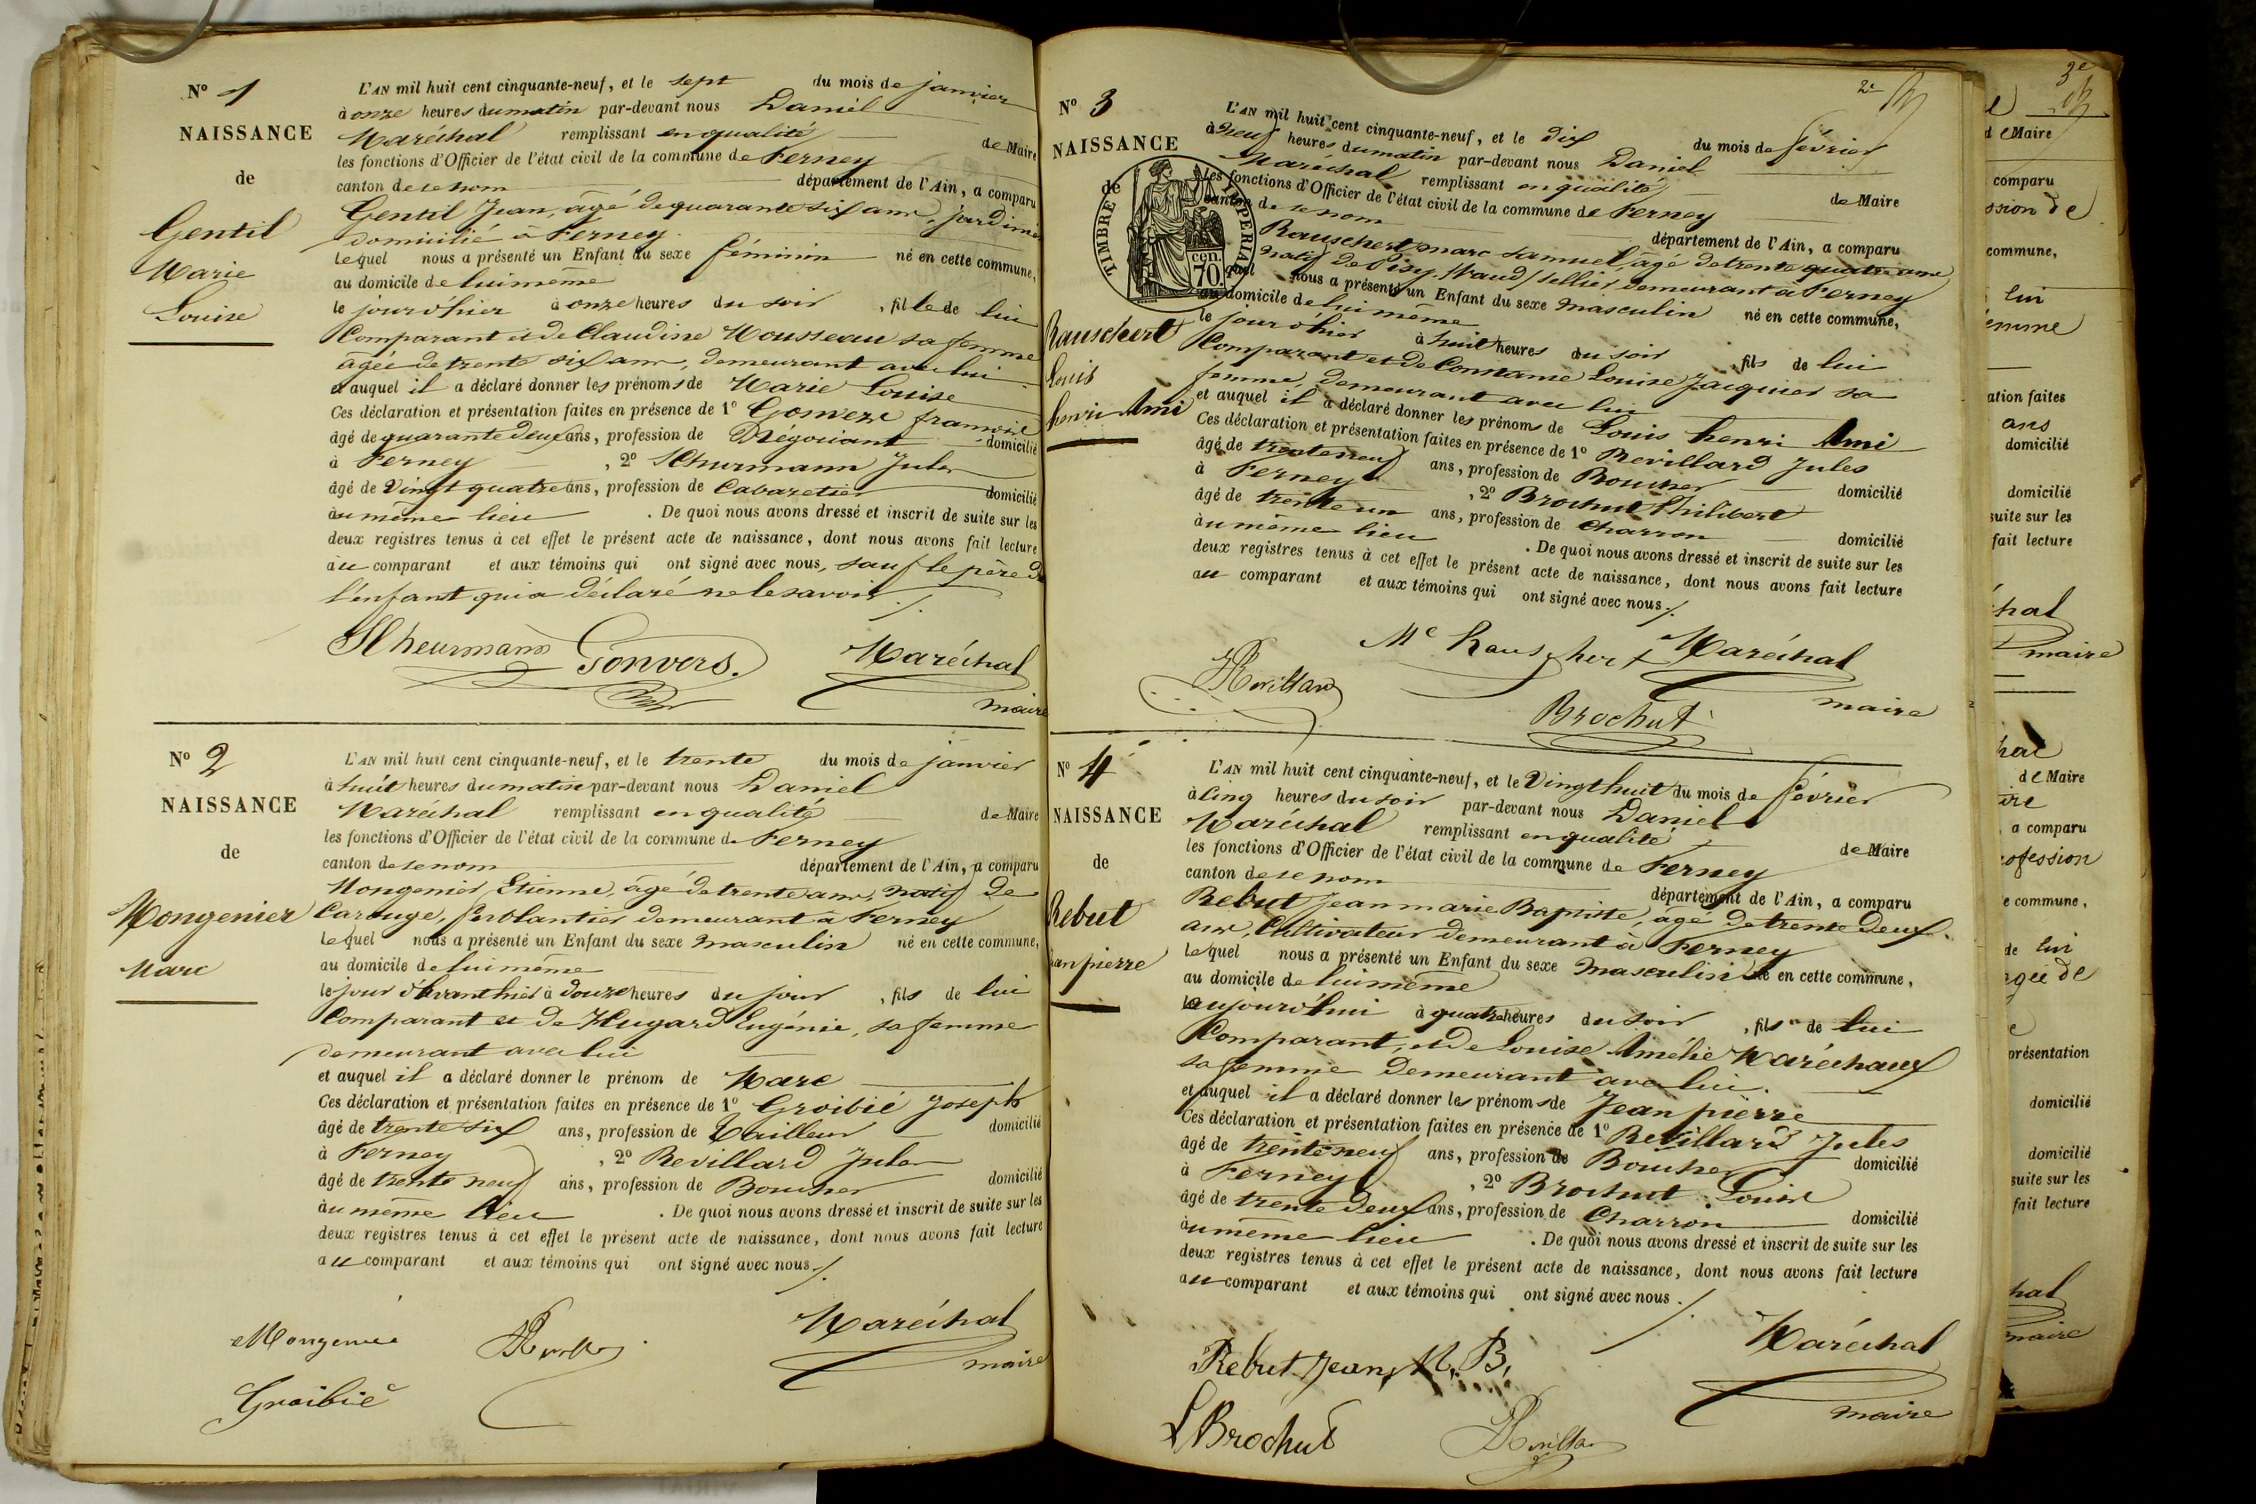 N° 1
NAISSANCE
de
Gentil
Marie
Louise
L'AN mil huit cent cinquante-neuf, et le sept du mois de janvier
à onze heures du matin par-devant nous Daniel
Maréchal remplissant en qualité de Maire
les fonctions d'Officier de l'état civil de la commune de Ferney
canton de ce nom département de l'Ain, a comparu
Gentil Jean, âgé de quarante six ans, jardinier
domicilié à Ferney
Lequel nous a présenté un Enfant du sexe féminin né en cette commune,
au domicile de lui même
le jour d'hier à onze heures du soir, fille de lui
Comparant et de Claudine Mousseau sa femme
âgée de trente six ans, demeurant avec lui
et auquel il a déclaré donner les prénoms de Marie Louise
Ces déclaration et présentation faites en présence de 1° Gonvers françois
âgé de quarante deux ans, profession de Négociant domicilié
à Ferney, 2° Schurmann Jules
âgé de vingt quatre ans, profession de Cabaretier domicilié
au même lieu. De quoi nous avons dressé et inscrit de suite sur les
deux registres tenus à cet effet le présent acte de naissance, dont nous avons fait lecture
au comparant et aux témoins qui ont signé avec nous, sauf le père de
l'enfant qui a déclaré ne le savoir ./.
Scheurmann Gonvers. Maréchal
maire
N° 2
NAISSANCE
de
Mongenier
Marc
L'AN mil huit cent cinquante-neuf, et le trente du mois de janvier
à huit heures du matin par-devant nous Daniel
Maréchal remplissant en qualité de Maire
les fonctions d'Officier de l'état civil de la commune de Ferney
canton de ce nom département de l'Ain, a comparu
Mongenier Etienne, âgé de trente ans, natif de
Carouge, ferblantier demeurant à Ferney
Lequel nous a présenté un Enfant du sexe masculin né en cette commune,
au domicile de lui même
le jour d'avant hier à douze heures du jour, fils de lui
Comparant et de Hugard Eugénie, sa femme
demeurant avec lui
et auquel il a déclaré donner le prénom de Marc
Ces déclaration et présentation faites en présence de 1° Groibié Joseph
âgé de trente six ans, profession de Tailleur domicilié
à Ferney, 2° Revillard Jules
âgé de trente neuf ans, profession de Boucher domicilié
au même lieu. De quoi nous avons dressé et inscrit de suite sur les
deux registres tenus à cet effet le présent acte de naissance, dont nous avons fait lecture
au comparant et aux témoins qui ont signé avec nous ./.
Maréchal
maire
Groibié
2e
N° 3
NAISSANCE
de
TIMBRE IMPERIAL
70 cen.
Rauschert
Louis
henri Ami
L'AN mil huit cent cinquante-neuf, et le dix du mois de février
à neuf heures du matin par-devant nous Daniel
Maréchal remplissant en qualité de Maire
les fonctions d'Officier de l'état civil de la commune de Ferney
canton de ce nom département de l'Ain, a comparu
Rauschert marc samuel, âgé de trente quatre ans
natif de Pizy, (vaud) sellier demeurant à Ferney
quel nous a présenté un Enfant du sexe masculin né en cette commune,
au domicile de lui même
le jour d'hier à huit heures du soir, fils de lui
Comparant et de Constance Louise Jacquier sa
femme, demeurant avec lui
et auquel il a déclaré donner les prénoms de Louis henri Ami
Ces déclaration et présentation faites en présence de 1° Revillard Jules
âgé de trente neuf ans, profession de Boucher domicilié
à Ferney, 2° Brochut Philibert
âgé de trente un ans, profession de Charron domicilié
au même lieu. De quoi nous avons dressé et inscrit de suite sur les
deux registres tenus à cet effet le présent acte de naissance, dont nous avons fait lecture
au comparant et aux témoins qui ont signé avec nous ./.
Mc Rauschert Maréchal
maire
Brochut
N° 4
NAISSANCE
de
Rebut
Jean pierre
L'AN mil huit cent cinquante-neuf, et le vingt huit du mois de février
à cinq heures du soir par-devant nous Daniel
Maréchal remplissant en qualité de Maire
les fonctions d'Officier de l'état civil de la commune de Ferney
canton de ce nom département de l'Ain, a comparu
Rebut Jean marie Baptiste, âgé de trente deux
ans, Cultivateur demeurant à Ferney
Lequel nous a présenté un Enfant du sexe masculin né en cette commune,
au domicile de lui même
aujourd'hui à quatre heures du soir, fils de lui
Comparant, et de Louise Amélie Maréchaux
sa femme demeurant avec lui.
et auquel il a déclaré donner les prénoms de Jean pierre
Ces déclaration et présentation faites en présence de 1° Revillard Jules
âgé de trente neuf ans, profession de Boucher domicilié
à Ferney, 2° Brochut Louis
âgé de trente deux ans, profession de Charron domicilié
au même lieu. De quoi nous avons dressé et inscrit de suite sur les
deux registres tenus à cet effet le présent acte de naissance, dont nous avons fait lecture
au comparant et aux témoins qui ont signé avec nous ./.
Maréchal
maire
Rebut Jean, M. B,
L Brochut
3e
de Maire
comparu
commune,
lui
ation faites
ans
domicilié
domicilié
suite sur les
fait lecture
maire
de Maire
a comparu
e commune,
de lui
domicilié
domicilié
suite sur les
fait lecture
maire